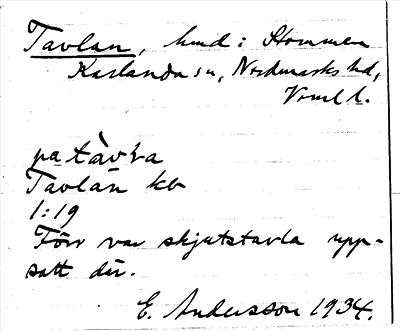 Tavlan, hmd: Stommen
Karlanda sn, Nordmarks hd,
Vrml l.
pa tàvɫa
Tavlan kb
1:19
Förr var skjutstavla upp-
satt där.
E. Andersson 1934.